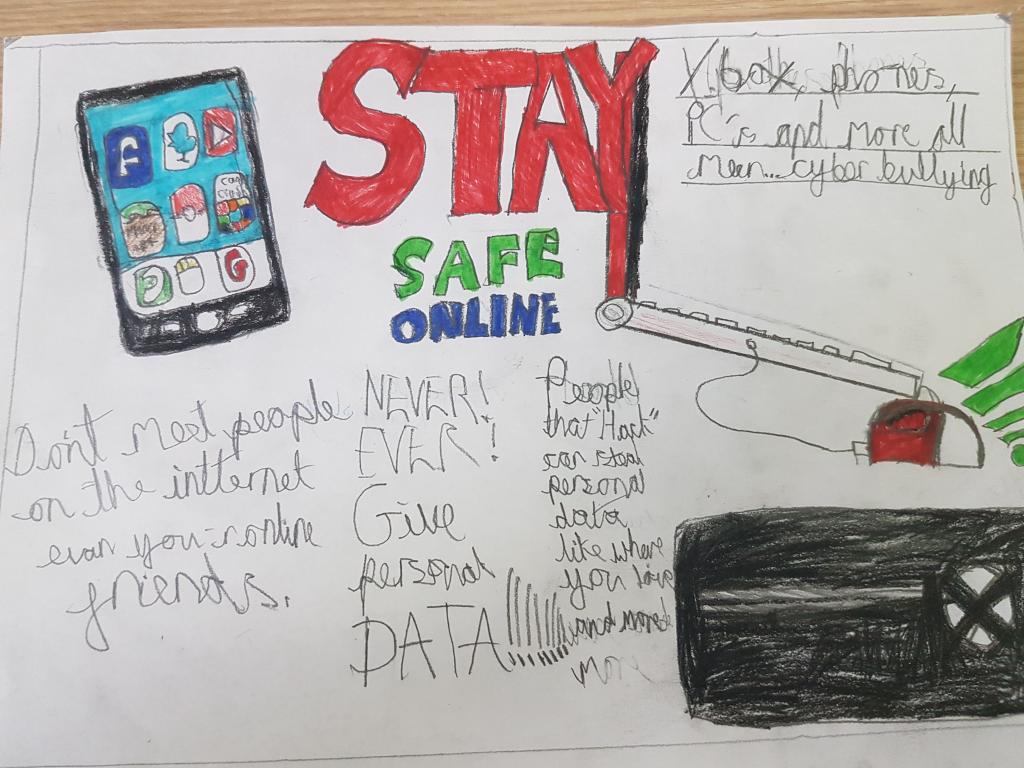 STAY
SAFE
ONLINE
Xbox, phones,
PC's and more all
mean... cyber bullying
Don't meet people
on the intternet
evan you-r online
friends.
NEVER!
EVER!
Give
personal
DATA!!!!!!!
People
that "Hack"
can steal
personal
data
like where
you live
and more
more